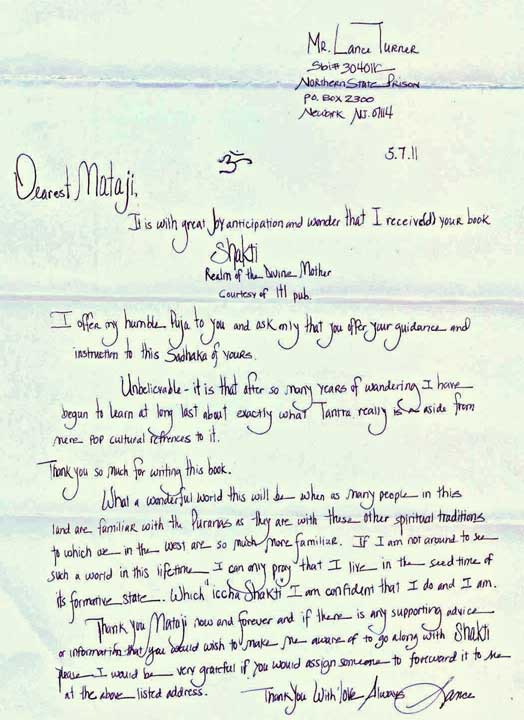 Mr. Lance Turner
Sbi# 304011C
Northern State Prison
P.O. Box 2300
Newark NJ. 07114
ॐ
5.7.11
Dearest Mataji,
It is with great joy anticipation and wonder that I receive(d) your book
Shakti
Realm of the Divine Mother
Courtesy of ITI pub.
I offer my humble Puja to you and ask only that you offer your guidance and
instruction to this Sadhaka of yours.
Unbelievable - it is that after so many years of wandering I have
begun to learn at long last about exactly what Tantra really is aside from
mere pop cultural refrences to it.
Thank you so much for writing this book.
What a wonderful world this will be when as many people in this
land are familiar with the Puranas as they are with these other spiritual traditions
to which we in the west are so much more familiar. If I am not around to see
such a world in this lifetime I can only pray that I live in the seed time of
its formative state. Which "iccha Shakti I am confident that I do and I am.
Thank you Mataji now and forever and if there is any supporting advice
or information that you would wish to make me aware of to go along with Shakti
please I would be very grateful if you would assign someone to foreward it to me
at the above listed address. Thank you With love Always Lance